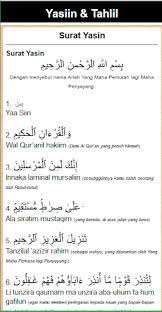 Yasiin & Tahlil
Surat Yasin
Surat Yasin
بِسْمِ اللَّهِ الرَّحْمَنِ الرَّحِيمِ
Dengan menyebut nama Allah Yang Maha Pemurah lagi Maha
Penyayang.
1. يس
Yaa Siin
2. وَالْقُرْءَانِ الْحَكِيمِ
Wal Qur'anil hakim (Demi Al Qur'an yang penuh hikmah)
3. إِنَّكَ لَمِنَ الْمُرْسَلِينَ
Innaka laminal mursalin (sesungguhnya kamu salah seorang
dari Rasul-rasul)
4. عَلَى صِرَاطٍ مُسْتَقِيمٍ
Ala siratim mustaqim (yang berada, di atas jalan yang lurus)
5. تَنْزِيلَ الْعَزِيزِ الرَّحِيمِ
Tanzilal 'azizir rahim (sebagai wahyu, yang diturunkan oleh Yang
Maha Perkasa lagi Maha Penyayang)
6. لِتُنْذِرَ قَوْمًا مَا أُنْذِرَ ءَابَاؤُهُمْ فَهُمْ غَافِلُونَ
Li tunzira qaumam ma unzira aba-uhum fa hum
gafilun (agar kamu memberi peringatan kepada kaum yang bapak-bapak